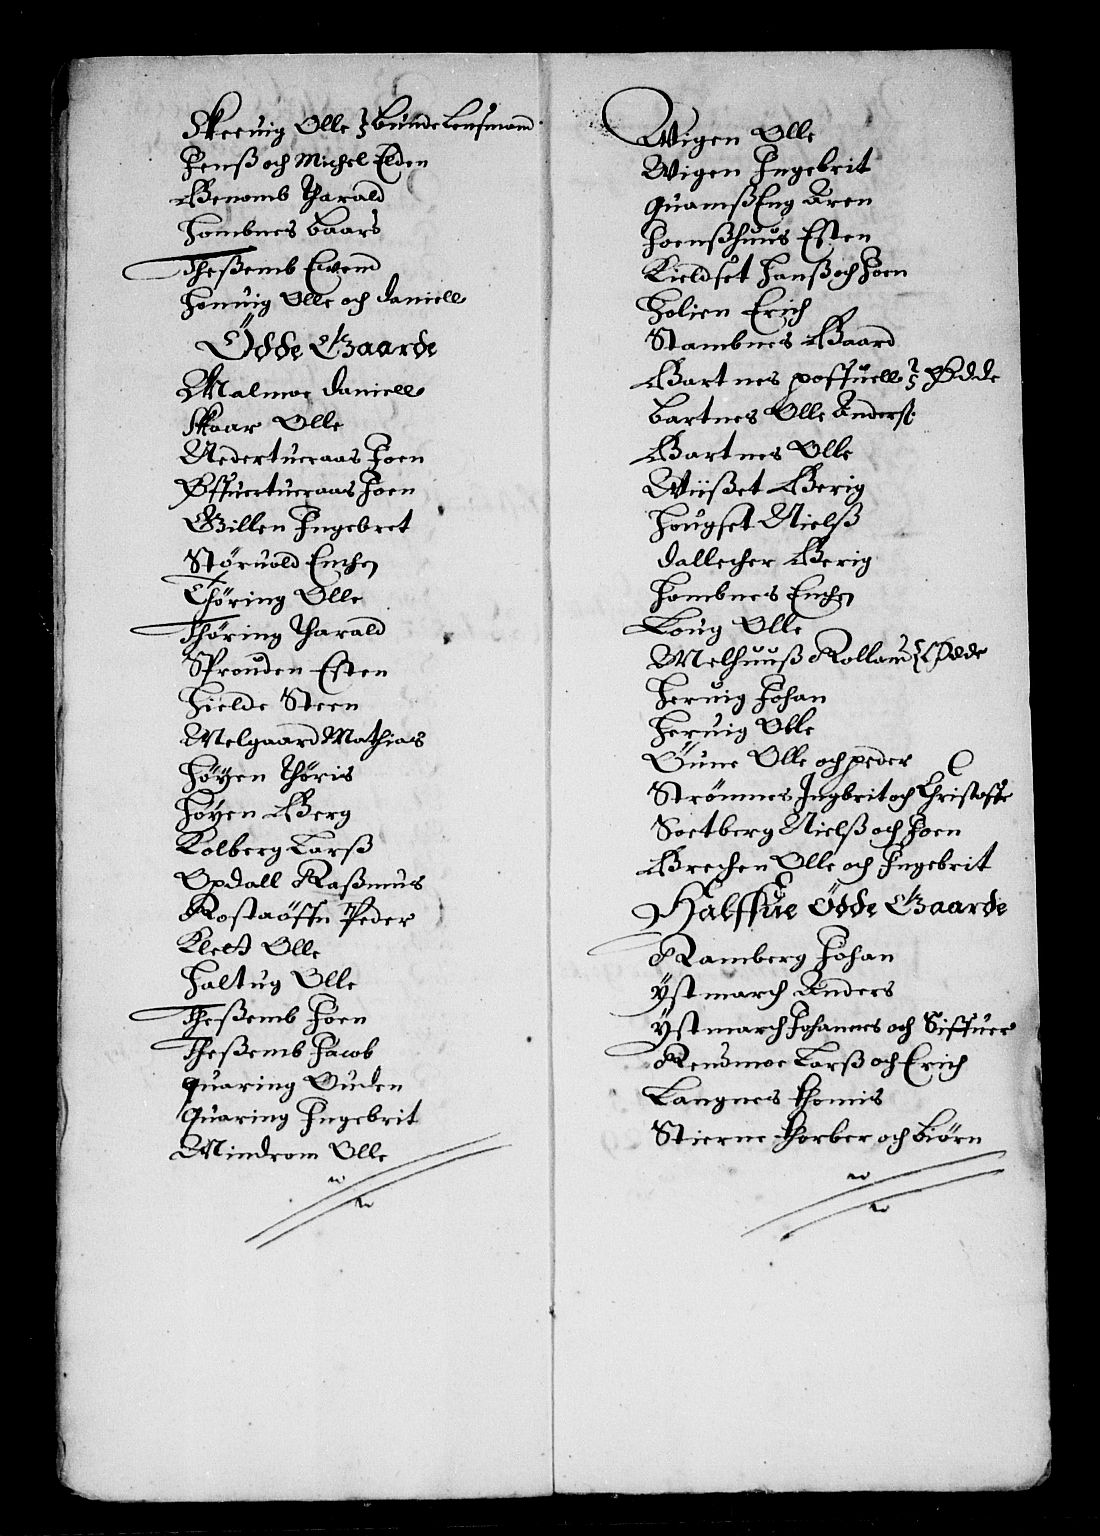 Skeruig Olle } Bunde Lensmand
Jenß och Michel Elden
Benomb Tharald
Hombnes Baars
Theßemb Ewend
Homuig Olle och Daniell
Ödde Gaarde
Malmoe Daniell
Skaar Olle
Nedertueraas Joen
Øffuertueraas Joen
Gillen Ingebret
Størvold Enchen
Thöring Olle
Thöring Tharald
Sprouden Esten
Hielde Steen
Melgaard Mathias
Höÿen Thöris
Høyen Berg
Kolberg Larß
Opdall Raßmus
Rostaöffn Peder
Klett Olle
Haltug Olle
Theßemb Joen
Theßemb Jacob
Quaring Guden
Quaring Ingebrit
Mindrom Olle
Wigen Olle
Wigen Ingebrit
QuamßEng Aren
Joenßhuus Esten
Kieldset Hanß och Joen
Holien Erich
Stambnes Baard
Bartnes poffuell } Ødde
Bartnes Olle Anderß
Bartnes Olle
Wiißet Berig
Hougset Nielß
Dallecher Berig
Hombnes Enchen
Loug Olle
Melhuuß Rolland } Ødde
Heruig Johan
Heruig Olle
Gune Olle och peder
Strömnes Ingbrit och Christoffe
Soetberg Nielß och Joen
Brechen Olle och Ingebrit
Halffue Ödde Gaarde
Ramberg Johan
Ÿstmarch Anders
Ÿstmarch Johannes och Siffuer
Rendmoe Larß och Erich
Langnes Thomis
Stierne Thorber och Biörn